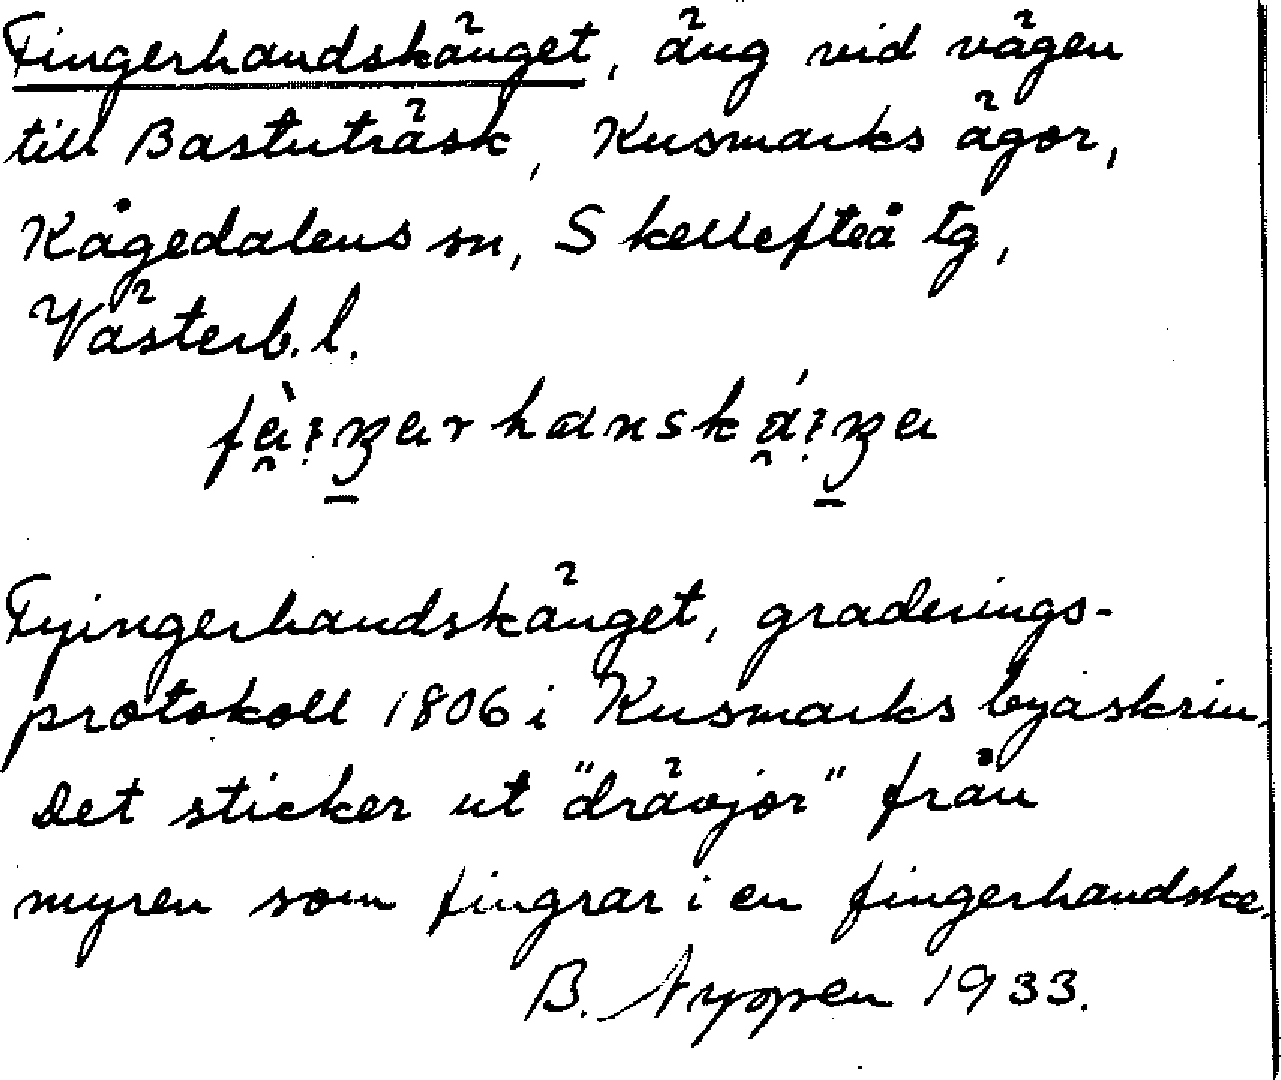 Fingerhandskänget, äng vid vägen
till Bastuträsk, Kusmarks ägor,
Kågedalens sn, Skellefteå tg,
Västerb. l.
Fyingerhandskänget, graderings-
protokoll 1806 i Kusmarks byaskrin.
Det sticker ut "drävjor" från
myren som fingrar i en fingerhandske.
B. Nyppen 1933.